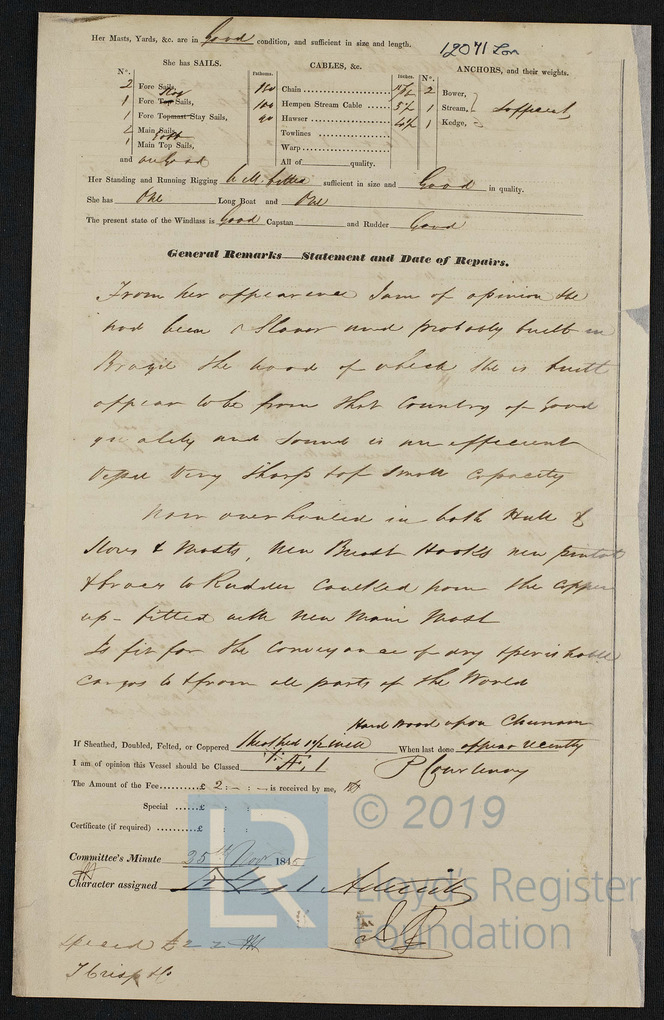 Her Masts, Yards, &c. are in Good condition, and sufficient in size and length.
12071 Lon
She has SAILS.
CABLES, &c.
ANCHORS, and their weights.
N°.
Fathoms.
Inches.
N°.
2 Fore Sails,
1 Fore Top Sails,
1 Fore Topmast Stay Sails,
Main Sails,
1 Main Top Sails,
and Good
Chain
100 Hempen Stream Cable
90 Hawser
Towlines
Warp
All of quality.
2 Bower,
1 Stream,
1 Kedge,
Her Standing and Running Rigging sufficient in size and Good in quality.
She has One Long Boat and One
The present state of the Windlass is Good Capstan and Rudder Good
General Remarks—Statement and Date of Repairs.
From her appearance I am of opinion she
had been a Slaver and probably built in
Brazil the wood of which she is built
appear to be from that Country of Good
quality and sound is an efficient
vessel very sharp & of small capacity
Now overhauled in both Hull &
Stores & Masts, New Breast Hooks new pintals
& braces to Rudder caulked from the copper
up - fitted with New Main Mast
Is fit for the conveyance of dry & perishable
cargos to & from all parts of the World
Hard Wood upon Chunam
If Sheathed, Doubled, Felted, or Coppered Sheathed When last done appear recently
I am of opinion this Vessel should be Classed Æ 1
P Courtenay
The Amount of the Fee £ 2 : - : - is received by me,
Special £ : :
Certificate (if required) £ : :
Committee's Minute 25th Novr 184
Character assigned Æ 1
£2
T Crisp & Co
© 2019
LR
Lloyd's Register
Foundation